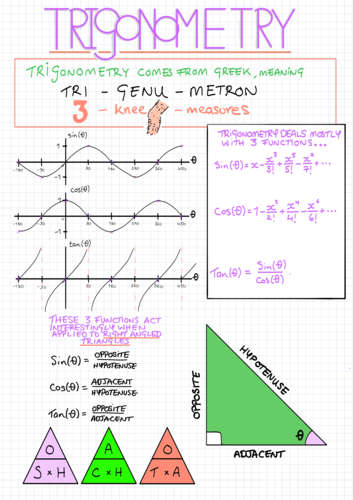 TRIGONOMETRY
TRIGONOMETRY COMES FROM GREEK, MEANING
TRI - GENU - METRON
3 - knee - measures
sin(θ)
1
θ
-1
cos(θ)
1
θ
-1
tan(θ)
θ
TRIGONOMETRY DEALS MOSTLY
WITH 3 FUNCTIONS...
Sin(θ) = x - x³/3! + x⁵/5! - x⁷/7! + ...
Cos(θ) = 1 - x²/2! + x⁴/4! - x⁶/6! + ...
Tan(θ) = Sin(θ)/Cos(θ)
THESE 3 FUNCTIONS ACT
INTERESTINGLY WHEN
APPLIED TO RIGHT ANGLED
TRIANGLES
Sin(θ) = OPPOSITE/HYPOTENUSE
Cos(θ) = ADJACENT/HYPOTENUSE
Tan(θ) = OPPOSITE/ADJACENT
O
S × H
A
C × H
O
T × A
OPPOSITE
HYPOTENUSE
θ
ADJACENT